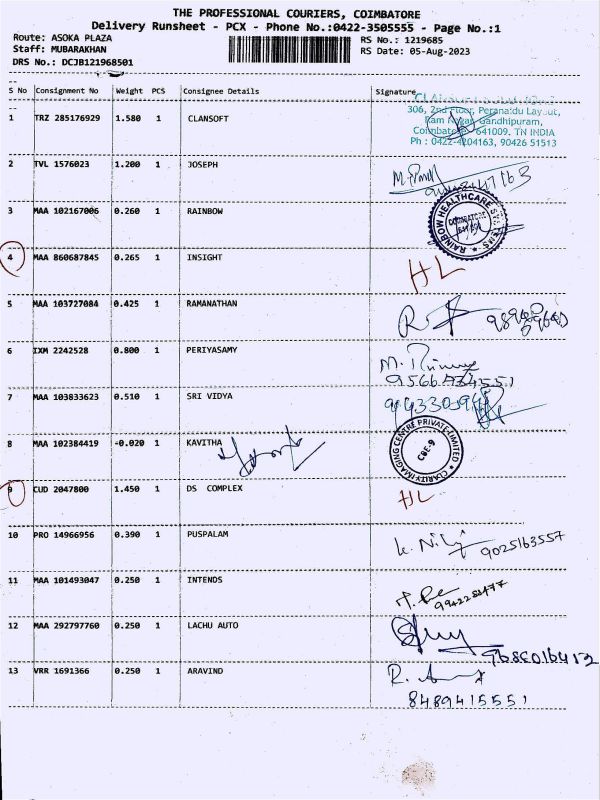 THE PROFESSIONAL COURIERS, COIMBATORE
Delivery Runsheet - PCX - Phone No.:0422-3505555 - Page No.:1
Route: ASOKA PLAZA RS No.: 1219685
Staff: MUBARAKHAN RS Date: 05-Aug-2023
DRS No.: DCJB121968501
S No Consignment No Weight PCS Consignee Details Signature
306, 2nd Floor, Peranaidu Layout,
1 TRZ 285176929 1.580 1 CLANSOFT
Ram Nagar, Gandhipuram,
Coimbatore 641009. TN INDIA
Ph : 0422-4204163, 90426 51513
2 TVL 1576023 1.200 1 JOSEPH
3 MAA 102167006 0.260 1 RAINBOW
RAINBOW HEALTHCARE SYSTEMS
COIMBATORE
4 MAA 860687845 0.265 1 INSIGHT HL
5 MAA 103727084 0.425 1 RAMANATHAN
6 IXM 2242528 0.800 1 PERIYASAMY
7 MAA 103833623 0.510 1 SRI VIDYA
8 MAA 102384419 -0.020 1 KAVITHA
CLARITY IMAGING CENTRE PRIVATE LIMITED
CBE-9
9 CUD 2047800 1.450 1 DS COMPLEX HL
10 PRO 14966956 0.390 1 PUSPALAM 9025163557
11 MAA 101493047 0.250 1 INTENDS
12 MAA 292797760 0.250 1 LACHU AUTO
13 VRR 1691366 0.250 1 ARAVIND
8489415551